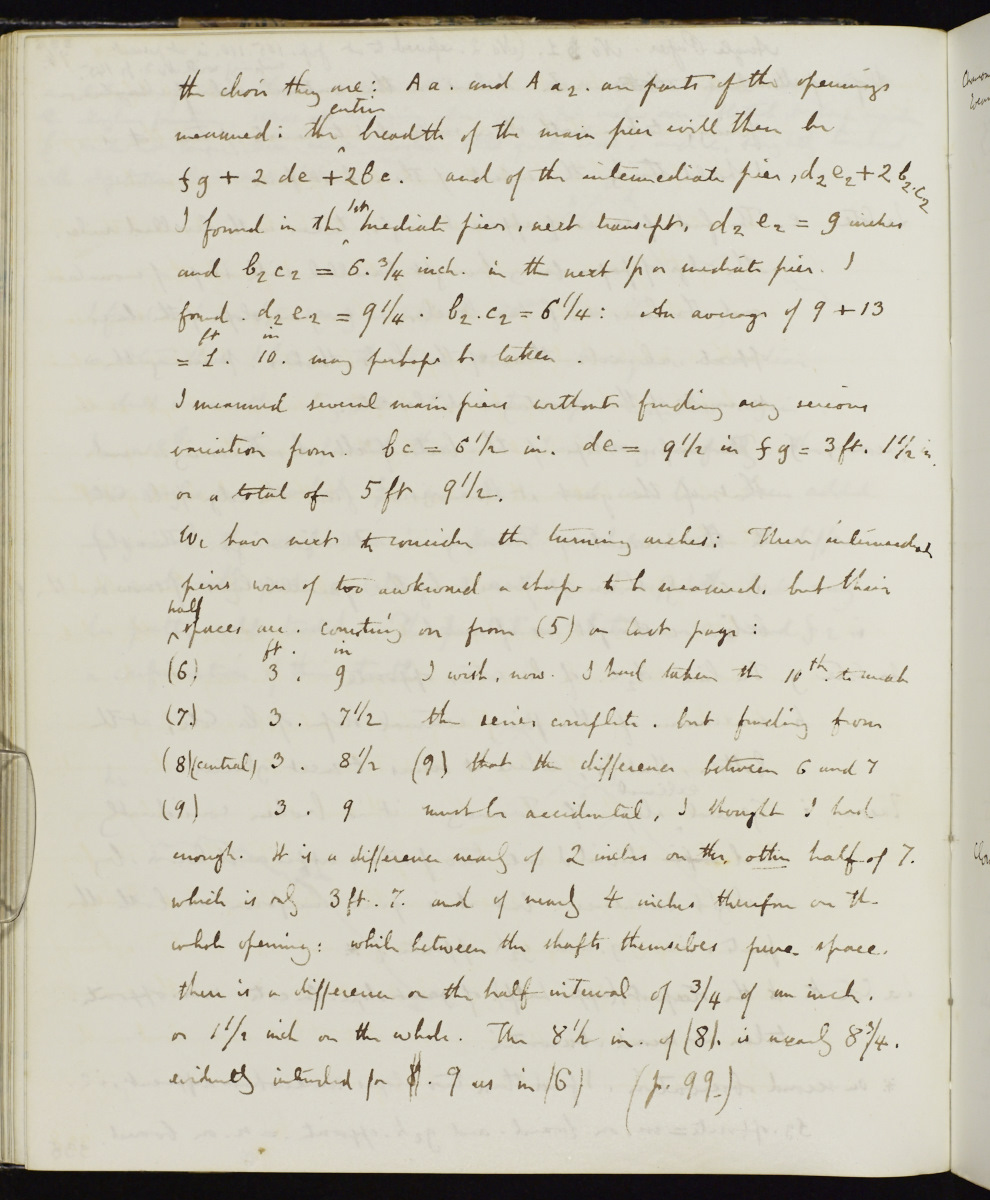 the choir they are: A a. and A a2. are parts of the openings
measured: the entire breadth of the main pier will then be
fg + 2 de + 2bc. and of the intermediate pier, d2 e2 + 2 b2.c2
I found in the 1st mediate pier, next transept, d2 e2 = 9 inches
and b2 c2 = 6.3/4 inch. in the next 1/p or mediate pier. I
found. d2 e2 = 9 1/4. b2.c2 = 6 1/4: An average of 9 + 13
= 1.ft 10.in may perhaps be taken.
I measured several main piers without finding any serious
variation from. bc = 6 1/2 in. de = 9 1/2 in fg = 3 ft. 1 1/2 in.
or a total of 5 ft 9 1/2.
We have next to consider the turning arches: Their intermediate
piers were of too awkward a shape to be measured. but their
half spaces are. counting on from (5) on last page:
ft. in
(6) 3. 9 I wish, now. I had taken the 10th. to make
(7) 3. 7 1/2 the series complete. but finding from
(8)(central) 3. 8 1/2 (9) that the difference between 6 and 7
(9) 3. 9 must be accidental, I thought I had
enough. It is a difference nearly of 2 inches on the, other half of 7.
which is only 3 ft. 7. and of nearly 4 inches therefore on the
whole opening: while between the shafts themselves pure space.
there is a difference on the half interval of 3/4 of an inch.
or 1 1/2 inch on the whole. The 8 1/2 in. of (8). is nearly 8 3/4.
evidently intended for 9 as in (6) (p. 99.)